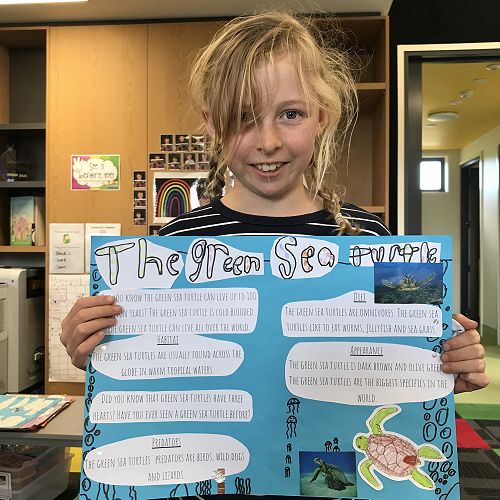 The green Sea Turtle
YOU KNOW THE GREEN SEA TURTLE CAN LIVE UP TO 100
YEARS! THE GREEN SEA TURTLE IS COLD BLOODED.
THE GREEN SEA TURTLE CAN LIVE ALL OVER THE WORLD.
HABITAT
THE GREEN SEA TURTLES ARE USUALLY FOUND ACROSS THE
GLOBE IN WARM TROPICAL WATERS.
DID YOU KNOW THAT GREEN SEA TURTLES HAVE THREE
HEARTS? HAVE YOU EVER SEEN A GREEN SEA TURTLE BEFORE?
PREDATORS
THE GREEN SEA TURTLES' PREDATORS ARE BIRDS, WILD DOGS
AND LIZARDS
DIET
THE GREEN SEA TURTLE ARE OMNIVORES. THE GREEN SEA
TURTLES LIKE TO EAT WORMS, JELLYFISH AND SEA GRASS.
APPEARANCE
THE GREEN SEA TURTLE IS DARK BROWN AND OLIVE GREEN.
THE GREEN SEA TURTLES ARE THE BIGGEST SPECIFICS IN THE
WORLD.